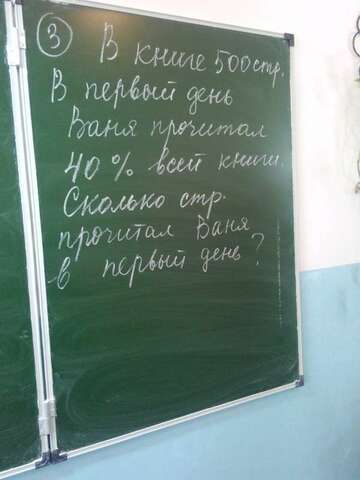 ③ В книге 500 стр.
В первый день
Ваня прочитал
40 % всей книги.
Сколько стр.
прочитал Ваня
в первый день?